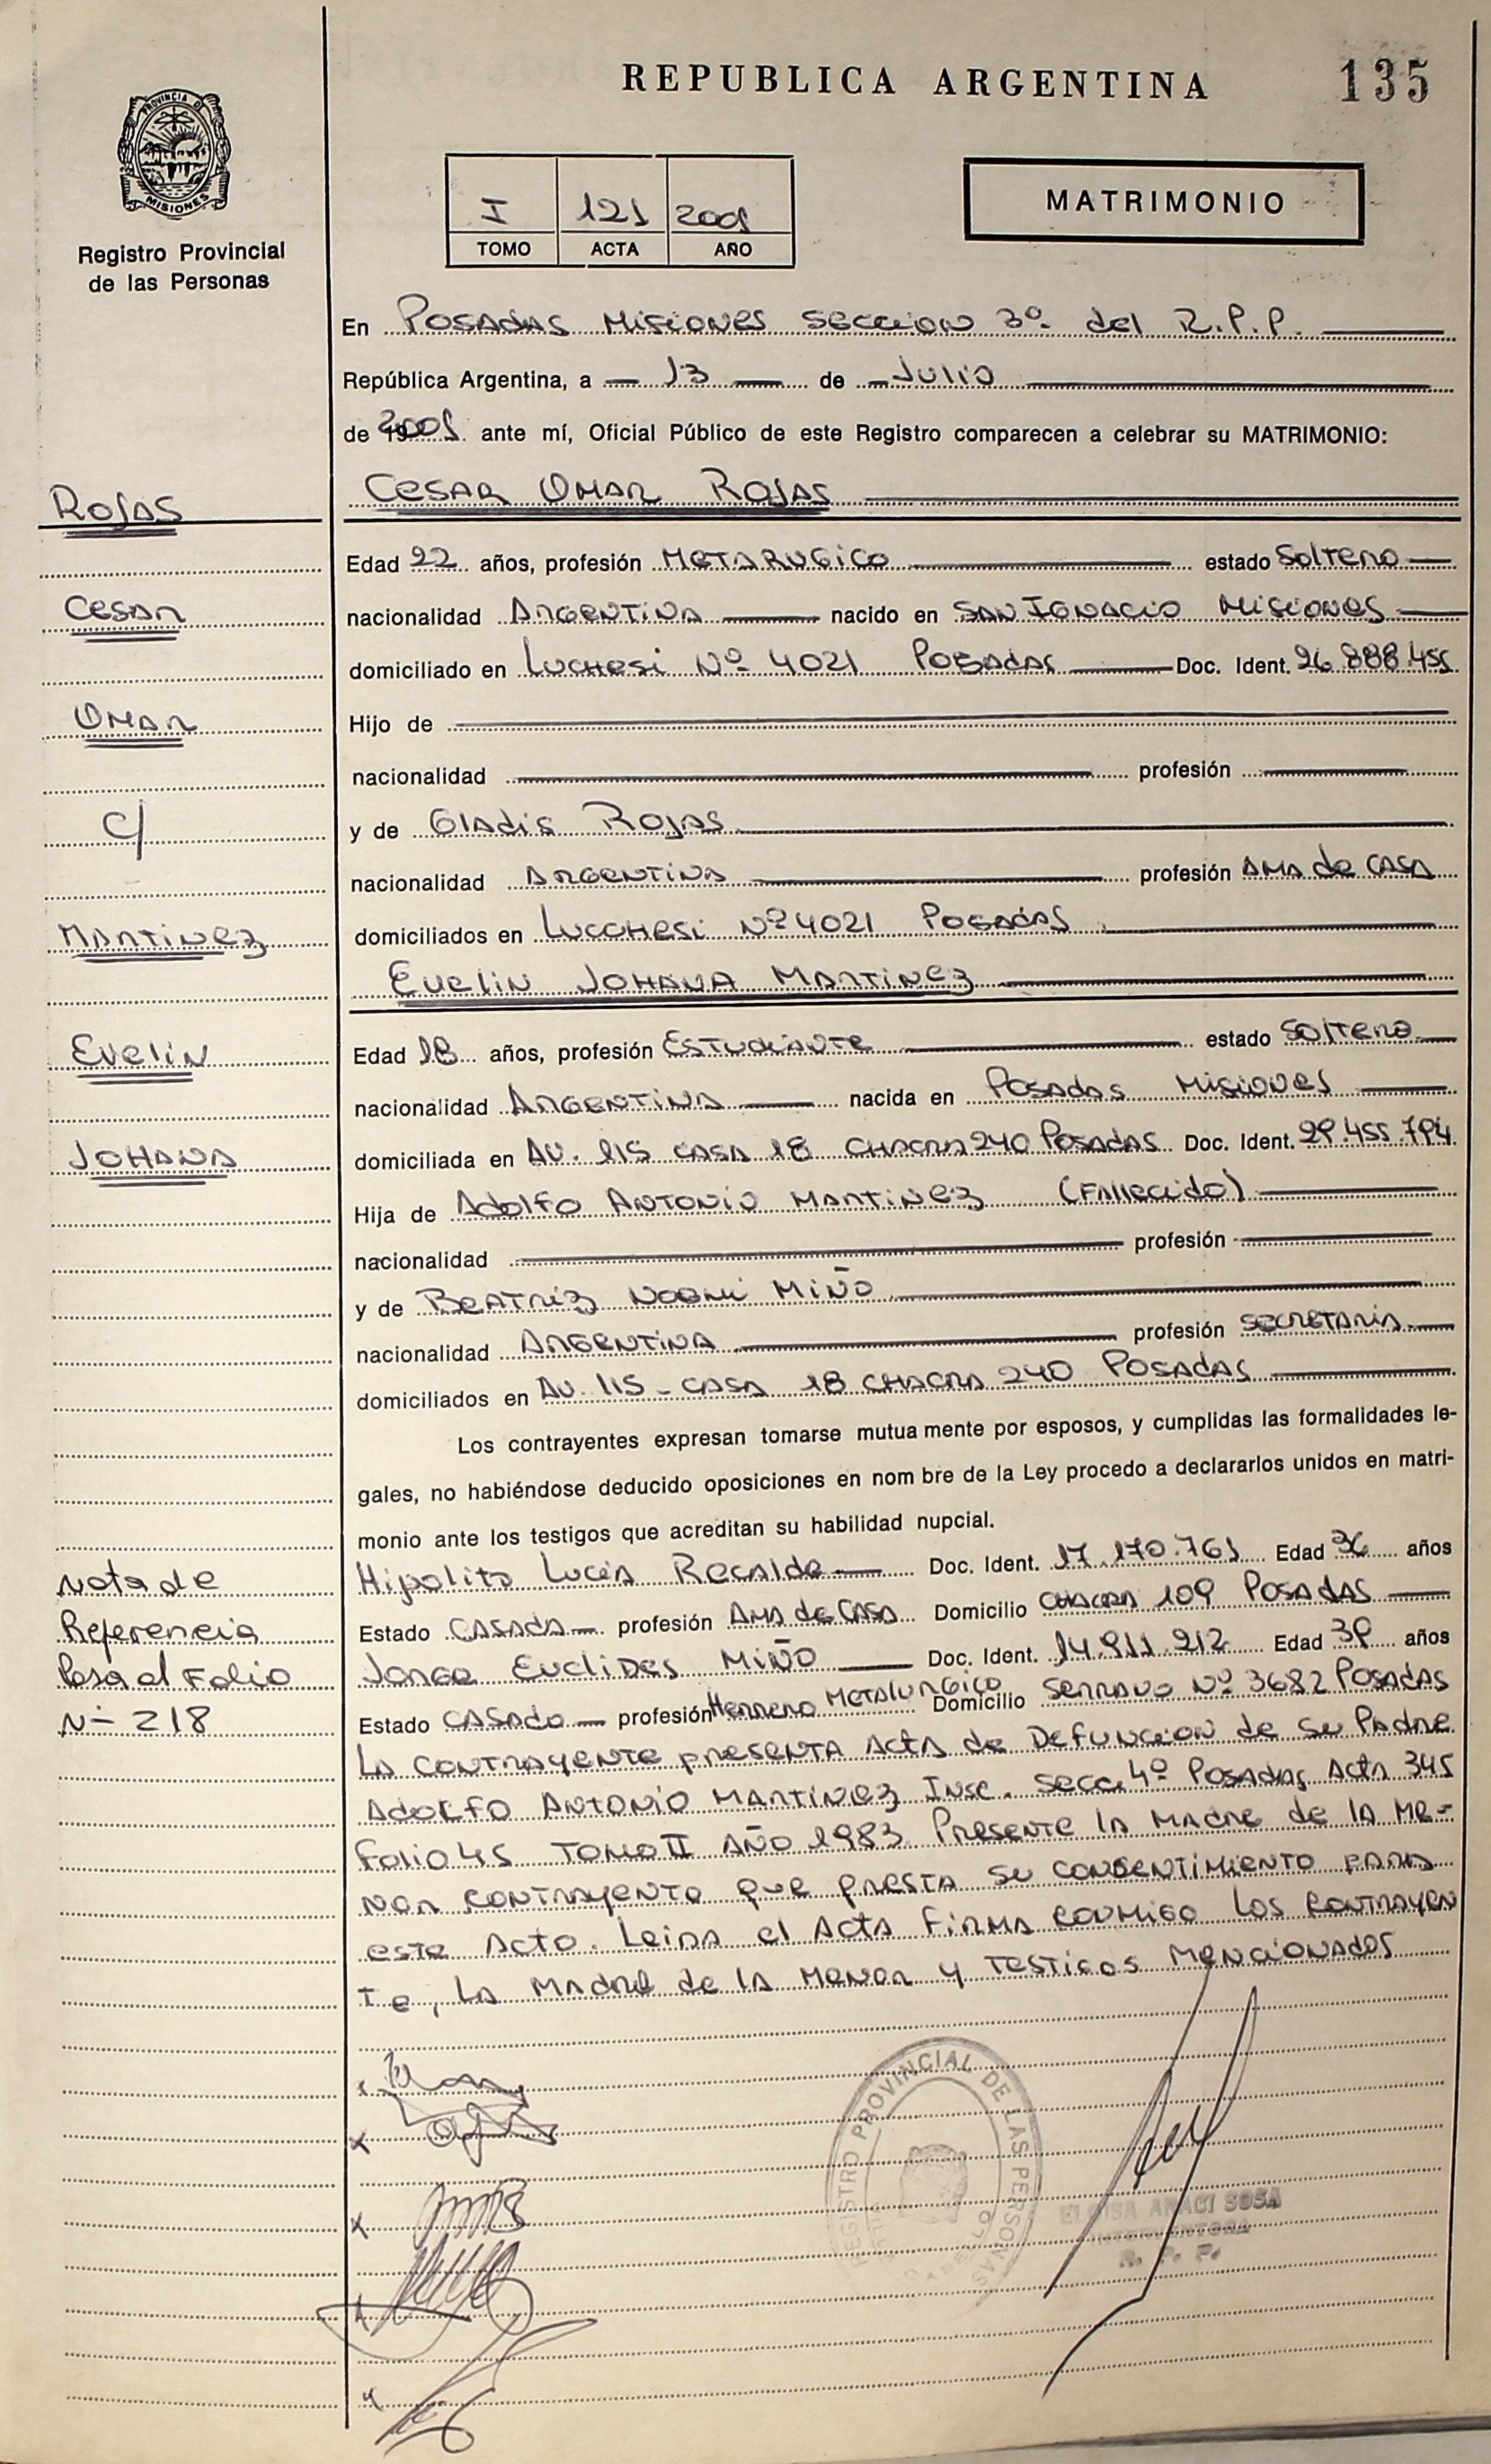 REPUBLICA ARGENTINA
135
PROVINCIA DE
MISIONES
Registro Provincial
de las Personas
I 121 2001
TOMO ACTA AÑO
MATRIMONIO
En POSADAS MISIONES SECCION 3º del R.P.P.
República Argentina, a 13 de JULIO
de 2001 ante mí, Oficial Público de este Registro comparecen a celebrar su MATRIMONIO:
ROJAS
CESAR OMAR ROJAS
Edad 22 años, profesión METARUGICO estado SOLTERO
CESAR
nacionalidad ARGENTINA nacido en SAN IGNACIO MISIONES
domiciliado en LUCHESI Nº 4021 POSADAS Doc. Ident. 26.888.455
OMAR
Hijo de
nacionalidad profesión
C/
y de GLADIS ROJAS
nacionalidad ARGENTINA profesión AMA de CASA
MARTINEZ
domiciliados en LUCCHESI Nº 4021 POSADAS
EVELIN JOHANA MARTINEZ
EVELIN
Edad 18 años, profesión ESTUDIANTE estado SOLTERA
nacionalidad ARGENTINA nacida en POSADAS MISIONES
JOHANA
domiciliada en AV. 115 CASA 18 CHACRA 240 POSADAS Doc. Ident. 29.455.794
Hija de ADOLFO ANTONIO MARTINEZ (FALLECIDO)
nacionalidad profesión
y de BEATRIZ NOEMI MIÑO
nacionalidad ARGENTINA profesión SECRETARIA
domiciliados en AV. 115 - CASA 18 CHACRA 240 POSADAS
Los contrayentes expresan tomarse mutua mente por esposos, y cumplidas las formalidades le-
gales, no habiéndose deducido oposiciones en nom bre de la Ley procedo a declararlos unidos en matri-
monio ante los testigos que acreditan su habilidad nupcial.
Nota de
Referencia
Pasa al Folio
Nº 218
Hipolita Lucia Recalde Doc. Ident. 17.170.761 Edad 36 años
Estado CASADA profesión AMA de CASA Domicilio CHACRA 109 POSADAS
JORGE EUCLIDES MIÑO Doc. Ident. 14.911.212 Edad 39 años
Estado CASADO profesión Herrero METALURGICO Domicilio SERRANO Nº 3682 POSADAS
LA CONTRAYENTE PRESENTA ACTA de DEFUNCION de SU PADRE
ADOLFO ANTONIO MARTINEZ INSC. SECC. 4º POSADAS ACTA 345
FOLIO 45 TOMO II AÑO 1983 PRESENTE LA MADRE de LA ME-
NOR CONTRAYENTE QUE PRESTA SU CONSENTIMIENTO PARA
ESTE ACTO. LEIDA el ACTA FIRMA CONMIGO LOS CONTRAYEN
TE, LA MADRE de LA MENOR Y TESTIGOS MENCIONADOS
REGISTRO PROVINCIAL DE LAS PERSONAS
ELOISA ARACI SOSA
INTERVENTORA
R. P. P.